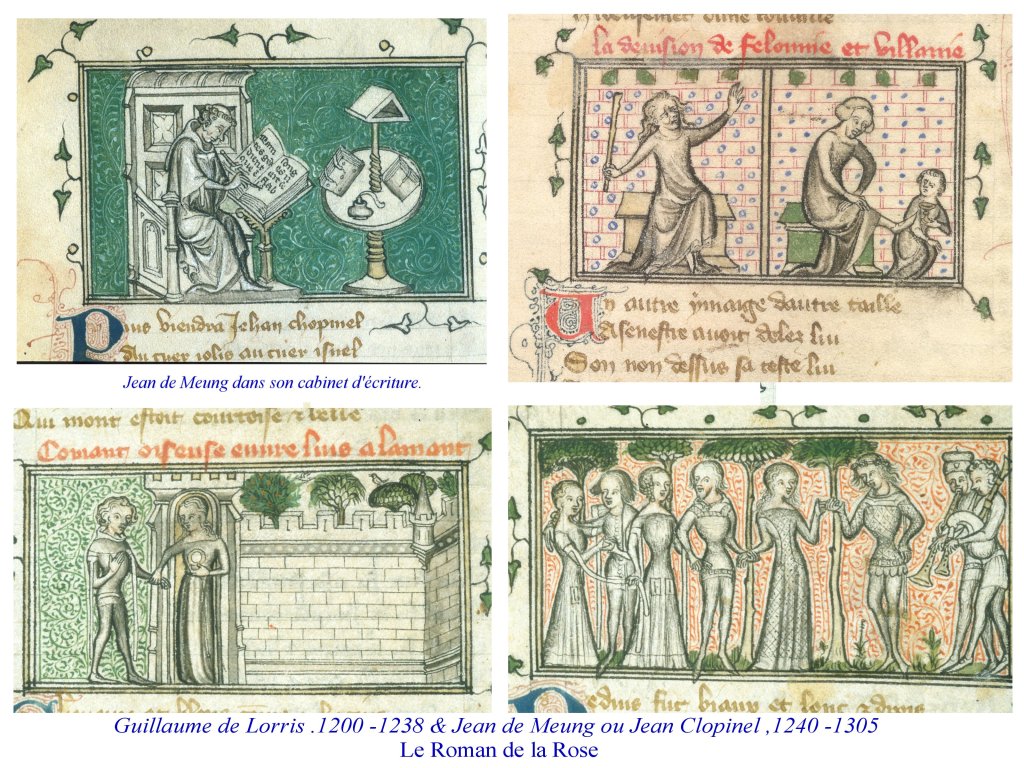 la deuision de felonnie et villanie
Puis viendra Jehan chopinel
Au cuer iolis au cuer isnel
Jean de Meung dans son cabinet d'écriture.
Vn autre ymaige dautre taille
A senestre auoit deles lui
Son non dessus sa teste lui
Qui mont estoit courtoise & bele
Comant oiseuse euure luis a lamant
Deduis fut biaus et lonc &
Guillaume de Lorris .1200 -1238 & Jean de Meung ou Jean Clopinel ,1240 -1305
Le Roman de la Rose